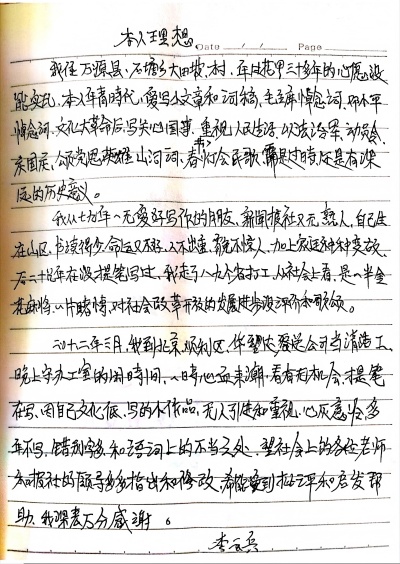 本人理想
Date / / Page
我住万源县,石塘乡大田坡村,年过花甲三十多年的心愿没
能实现,本人年青时代,爱写小文章和词稿,毛主席悼念词,邓小平
悼念词,文化大革命后,写关心国事,重视人民生活,以法治军,
亲国庆,颂党恩英雄山河词,春灯会民歌,
远的历史意义。
我从七九年一无爱好写作的朋友,新闻报社又无熟人,自己住
在山区,书读得少,命运又不好,人不出重,貌不惊人,加上家庭种种变故,
后二十几年在没提笔写过,我走了八九个省打工,从社会上看,是一半金
一片晴,对社会改革开放的发展进步
二〇十二年三月,我到北京,顺利区,公司当清洁工,
晚上守办工室的闲时间,一时心血来潮,看有无机会,才提笔
在写,因自己文化低,写的不作品,无人引进和重视,心灰意冷多
年不写,错别字多和语词上的不当之处,望社会上的各位老师
和报社的领导多多指出和修改,希能受到批评和启发帮
助,我深表万分感谢。